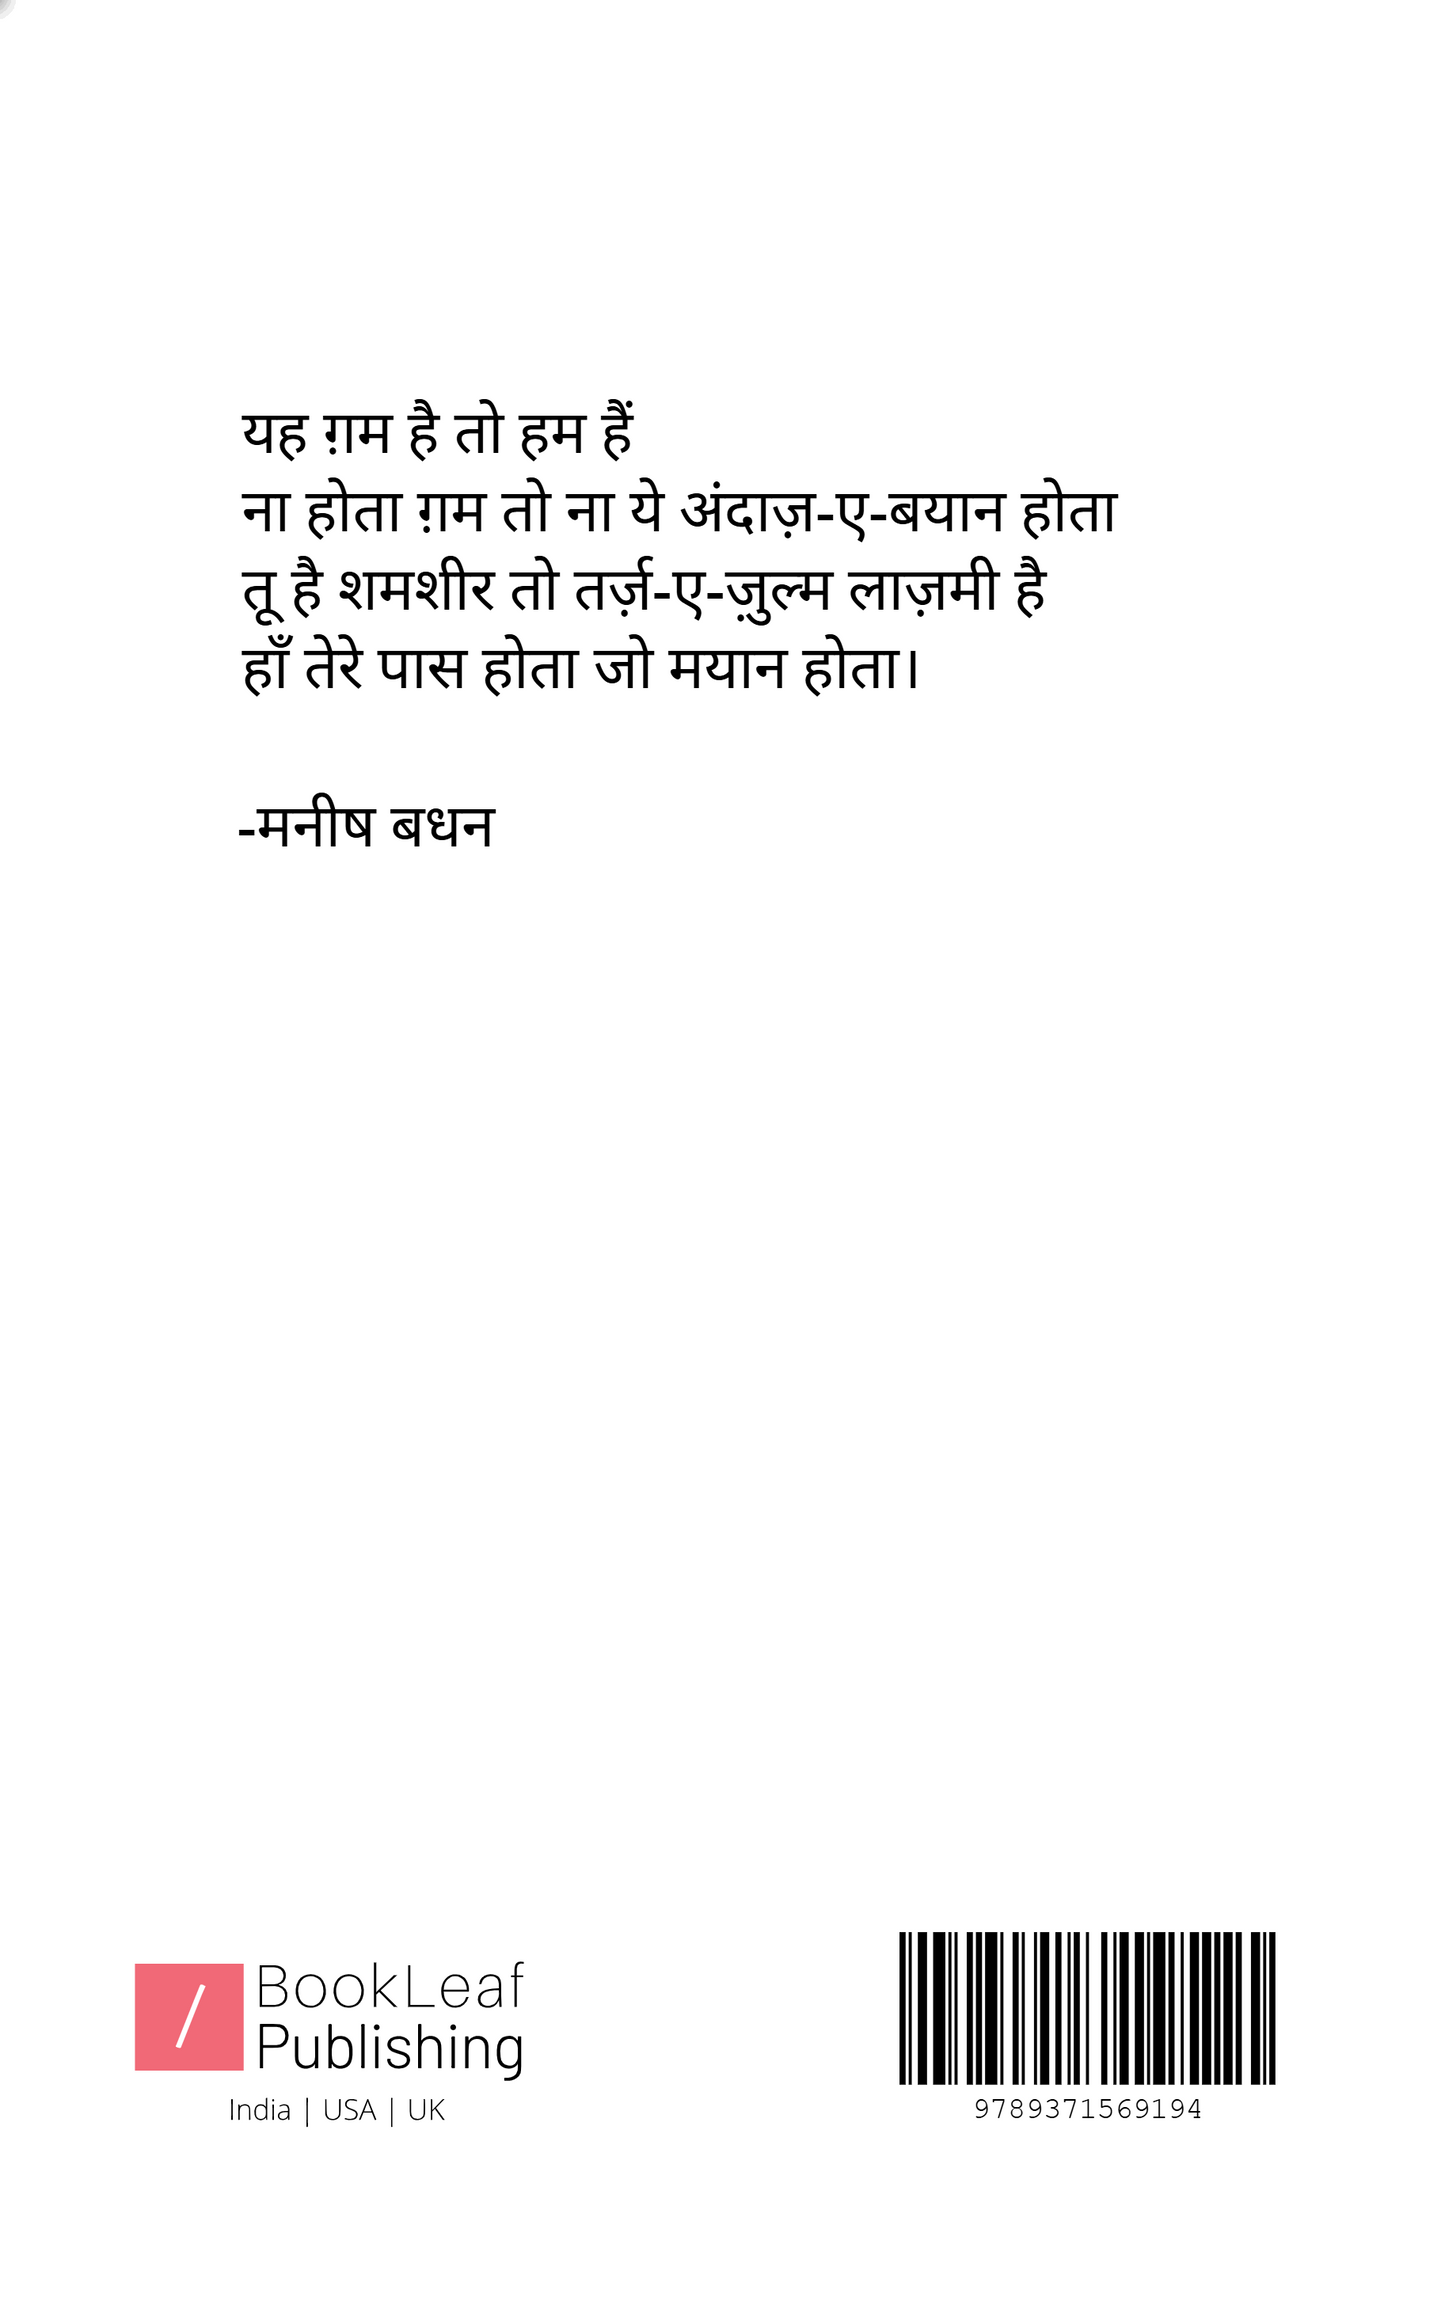 यह ग़म है तो हम हैं
ना होता ग़म तो ना ये अंदाज़-ए-बयान होता
तू है शमशीर तो तर्ज़-ए-ज़ुल्म लाज़मी है
हाँ तेरे पास होता जो मयान होता।
-मनीष बधन
BookLeaf
Publishing
India | USA | UK
9789371569194